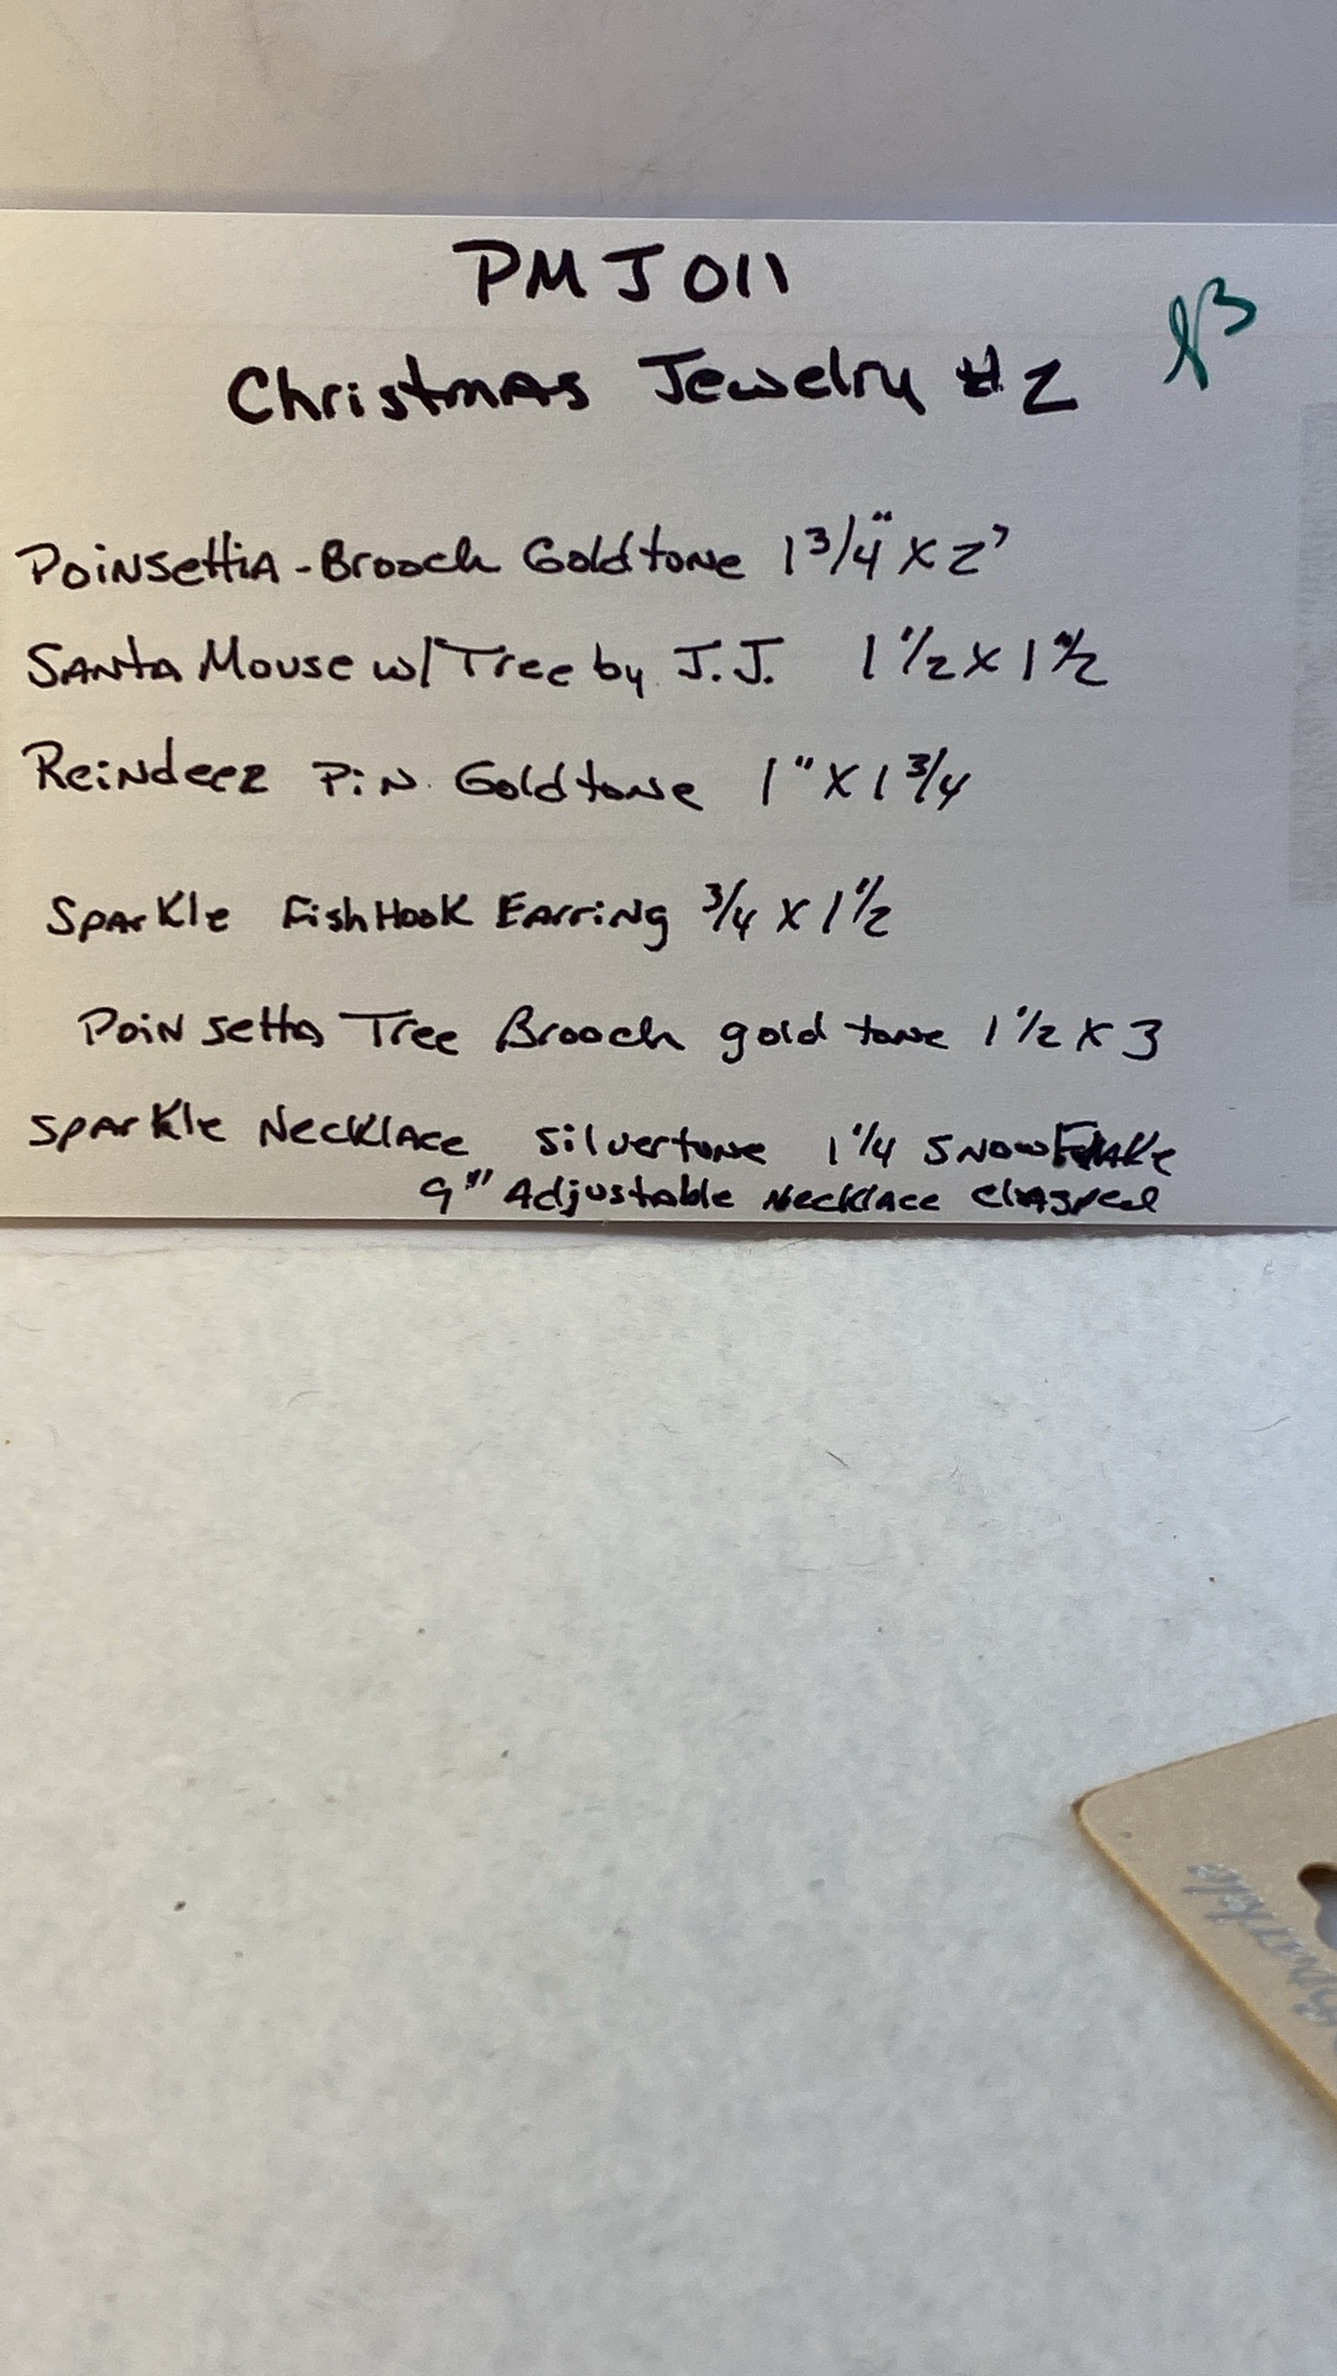 PMJ011
Christmas Jewelry #2
Poinsettia-Brooch Goldtone 1 3/4" X 2"
Santa Mouse w/Tree by J.J. 1 1/2 X 1 1/2"
Reindeer Pin Goldtone 1" X 1 3/4
Sparkle FishHook Earring 3/4 X 1 1/2
Poinsetta Tree Brooch gold tone 1 1/2 X 3
Sparkle Necklace Silvertone 1 1/4 Snowflake
9" Adjustable Necklace Clasped
Sparkle